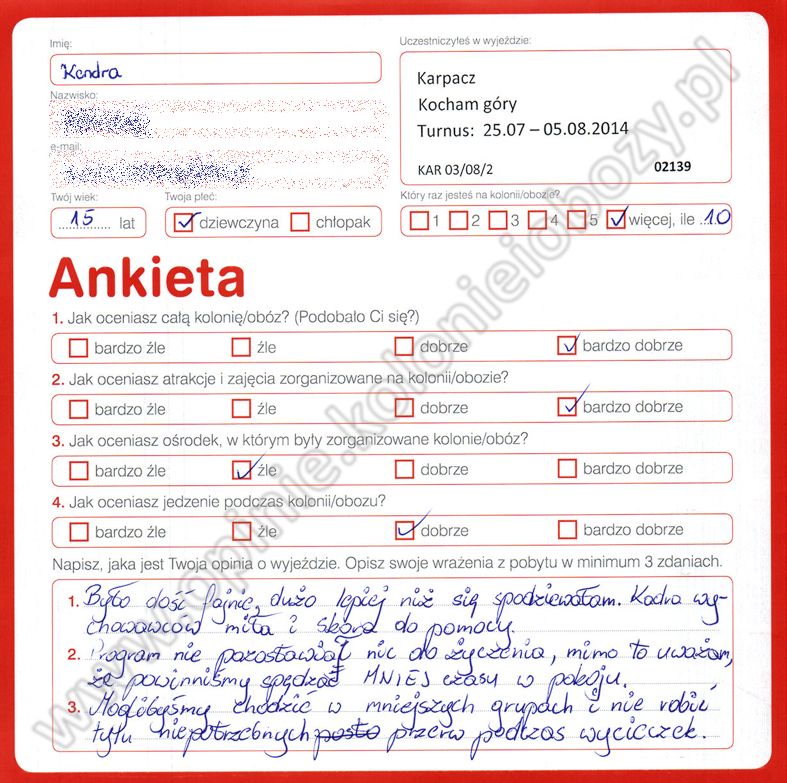 Imię:
Kendra
Uczestniczyłeś w wyjeździe:
Karpacz
Kocham góry
Turnus: 25.07 – 05.08.2014
KAR 03/08/2 02139
Nazwisko:
e-mail:
Twój wiek:
15 lat
Twoja płeć:
dziewczyna chłopak
Który raz jesteś na kolonii/obozie?
1 2 3 4 5 więcej, ile 10
Ankieta
1. Jak oceniasz całą kolonię/obóz? (Podobało Ci się?)
bardzo źle źle dobrze bardzo dobrze
2. Jak oceniasz atrakcje i zajęcia zorganizowane na kolonii/obozie?
bardzo źle źle dobrze bardzo dobrze
3. Jak oceniasz ośrodek, w którym były zorganizowane kolonie/obóz?
bardzo źle źle dobrze bardzo dobrze
4. Jak oceniasz jedzenie podczas kolonii/obozu?
bardzo źle źle dobrze bardzo dobrze
Napisz, jaka jest Twoja opinia o wyjeździe. Opisz swoje wrażenia z pobytu w minimum 3 zdaniach.
1. Było dość fajnie, dużo lepiej niż się spodziewałam. Kadra wy-
chowawców miła i skora do pomocy.
2. Program nie pozostawiał nic do życzenia, mimo to uważam,
że powinniśmy spędzać MNIEJ czasu w pokoju.
3. Moglibyśmy chodzić w mniejszych grupach i nie robić
tylu niepotrzebnych posto przerw podczas wycieczek.
www.opinie.kolonieiobozy.pl